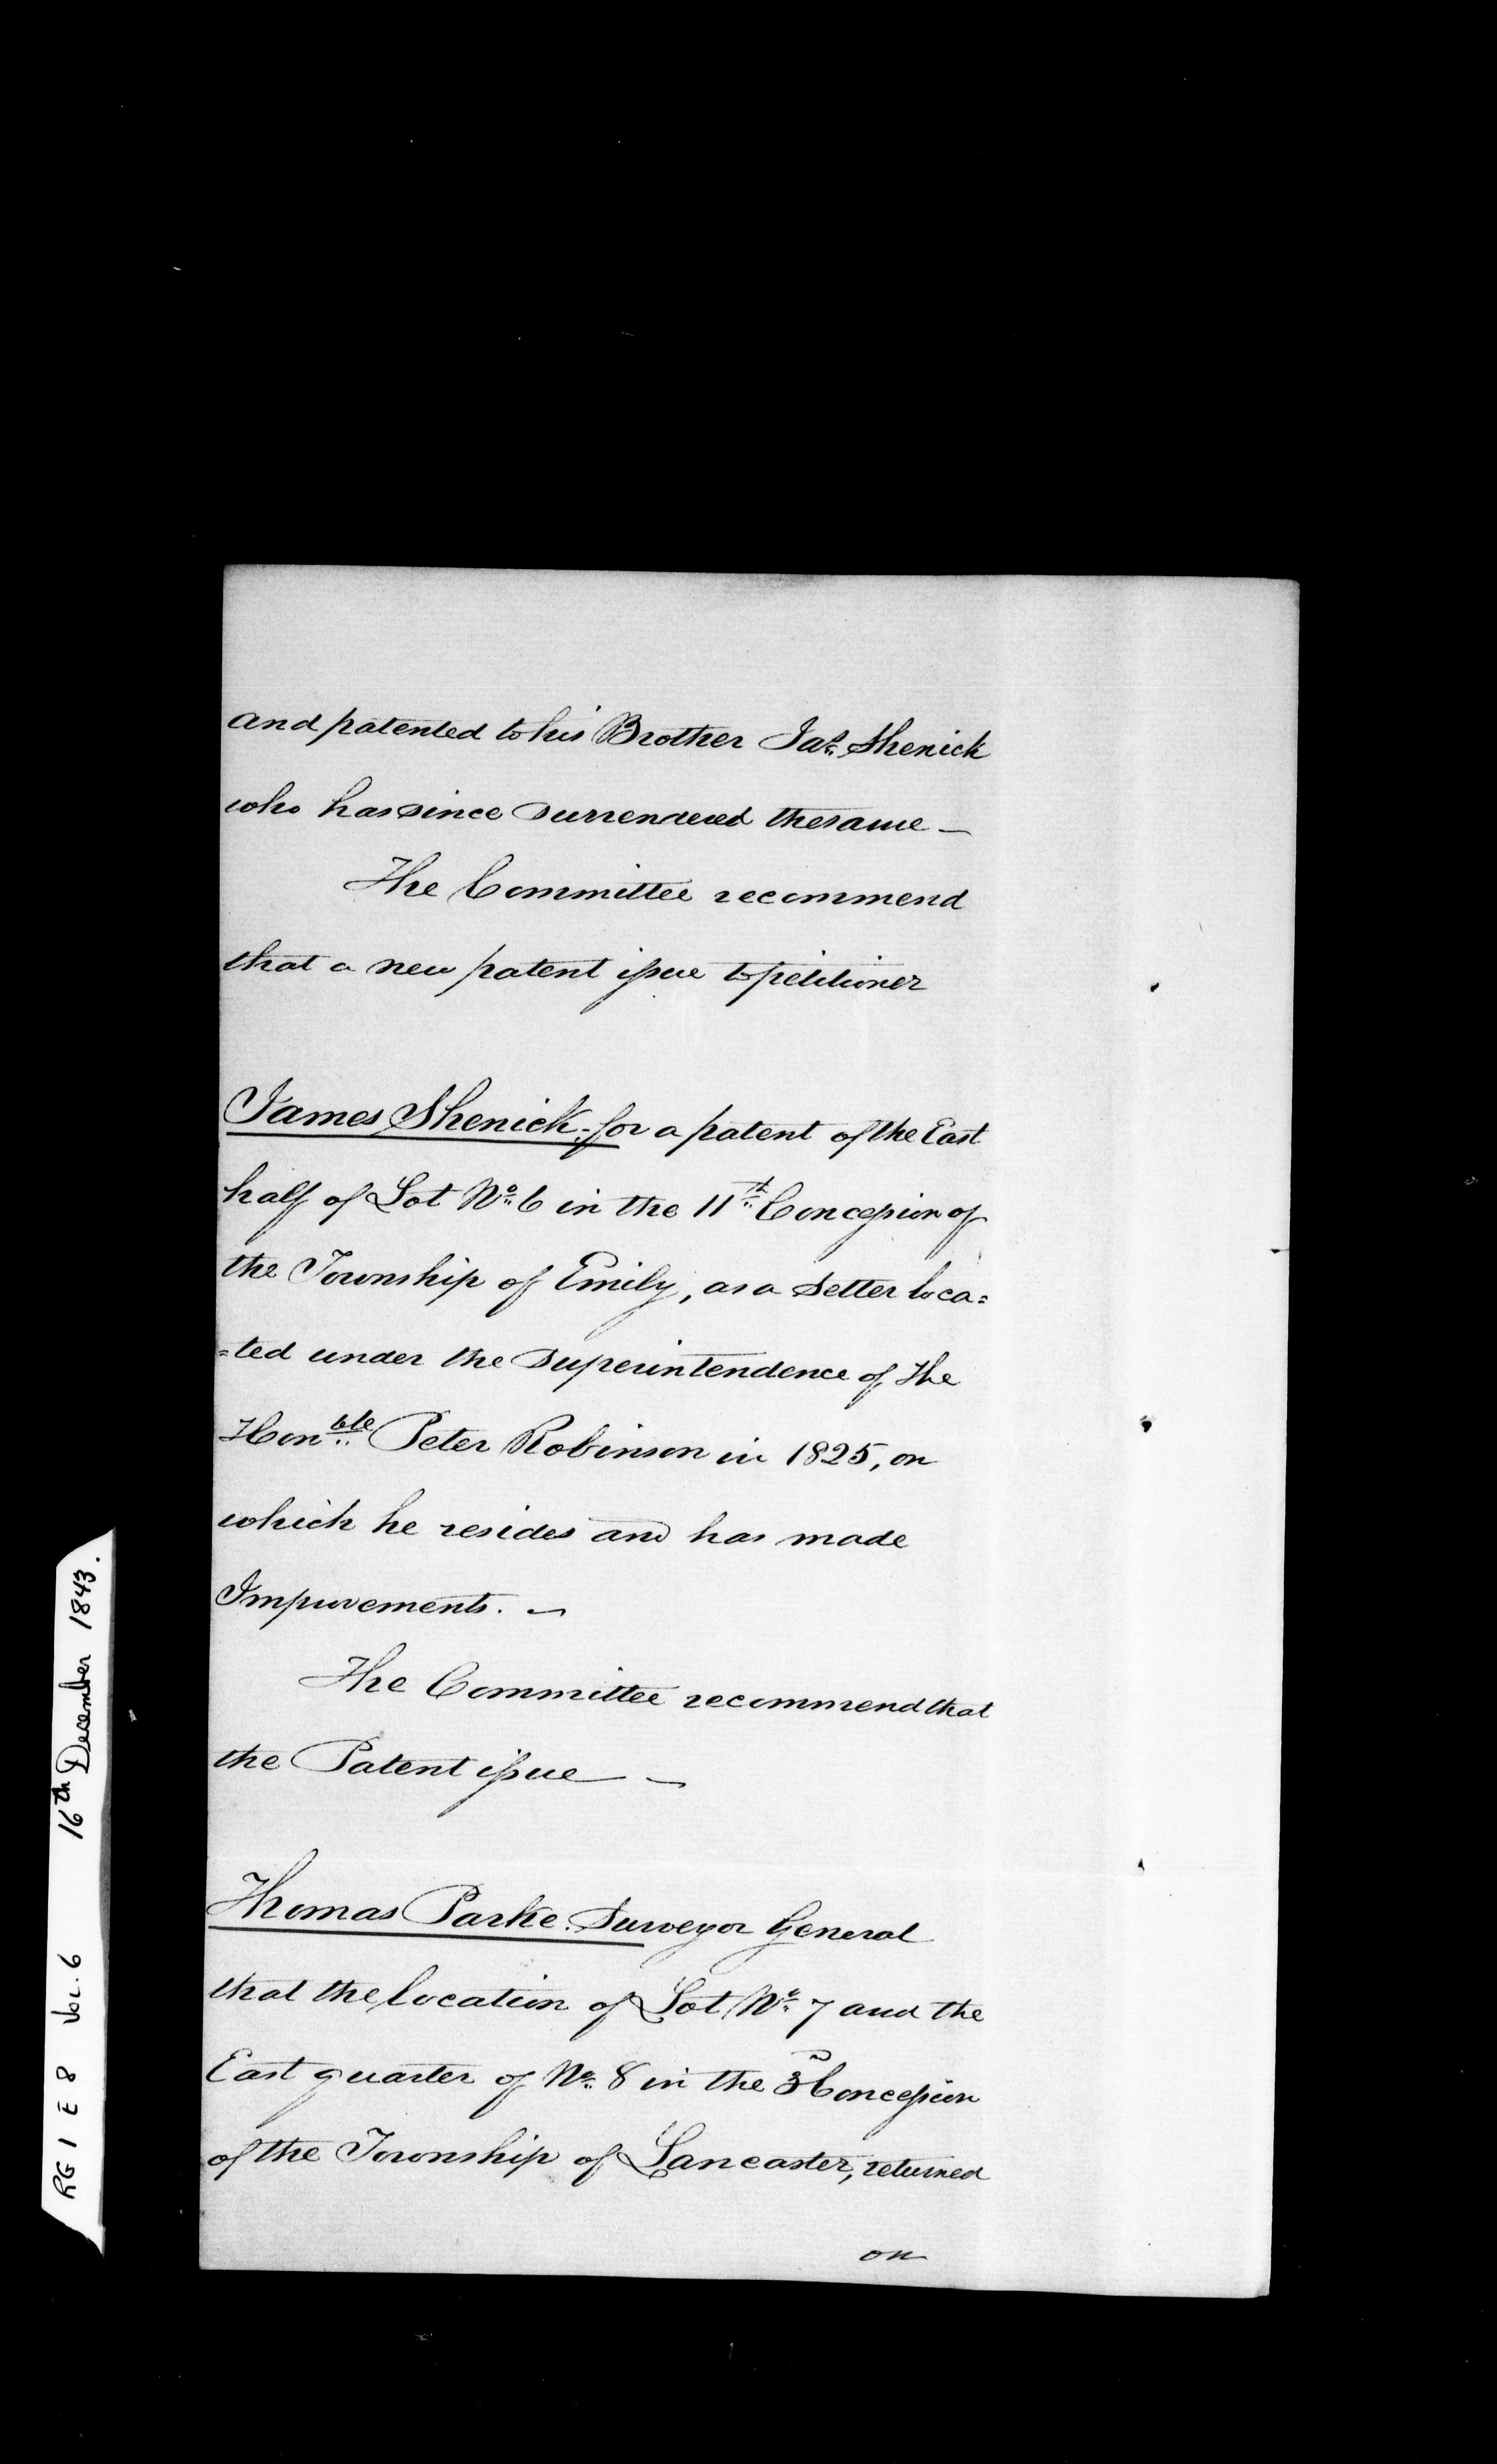 and patented to his Brother Jas. Shenick
who has since surrendered the same —
The Committee recommend
that a new patent issue to petitioner
James Shenick. for a patent of the East
half of Lot No. 6 in the 11th Concession of
the Township of Emily, as a Setter loca=
=ted under the Superintendence of The
Honble Peter Robinson in 1825, on
which he resides and has made
Improvements. —
The Committee recommend that
the Patent issue —
Thomas Parke. Surveyor General
that the location of Lot No. 7 and the
East quarter of No. 8 in the 3d Concession
of the Township of Lancaster, returned
on
RG 1 E 8 Vol. 6 16th December 1843.